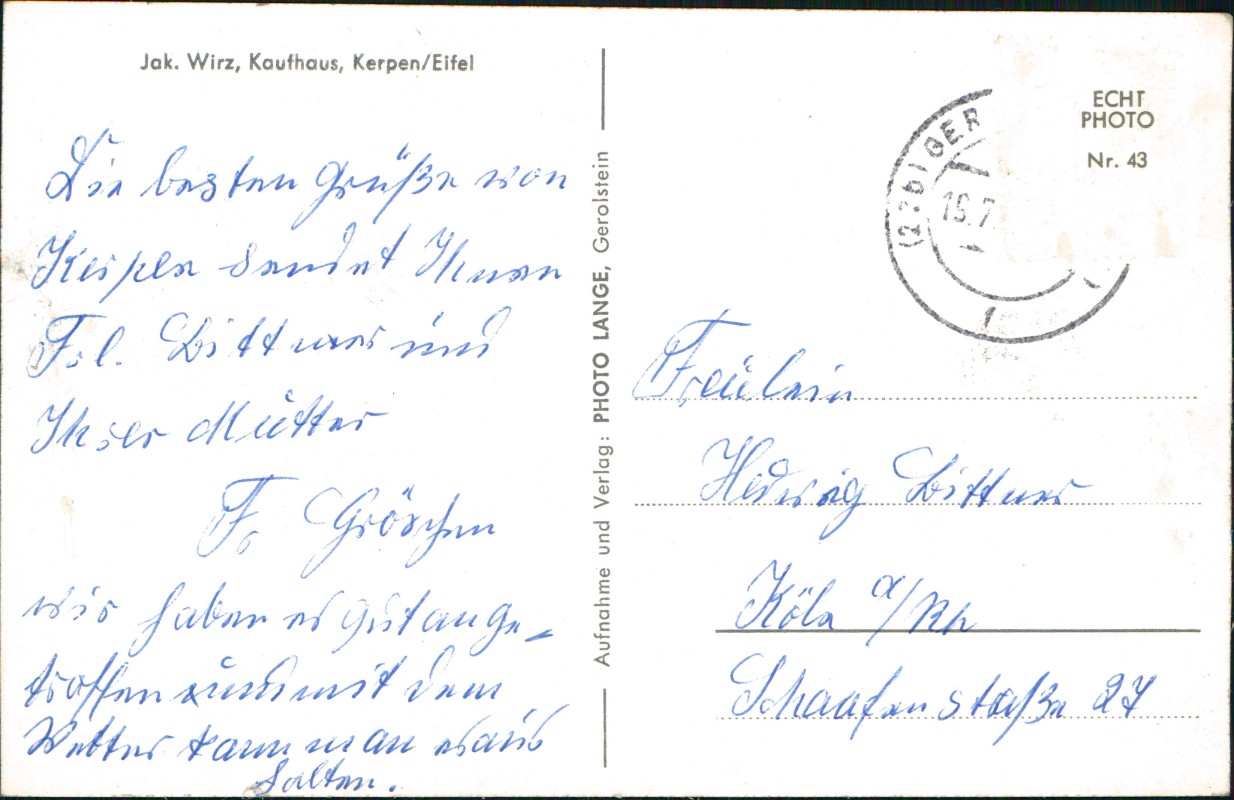 Jak. Wirz, Kaufhaus, Kerpen/Eifel
Die besten Grüße von
Kerpen sendet Ihnen
Frl. Bittner und
Ihrer Mutter
Fr. Gröschen
wir haben es gut ange-
troffen und mit dem
Wetter kann man es aus
halten.
Aufnahme und Verlag: PHOTO LANGE, Gerolstein
ECHT
PHOTO
Nr. 43
(22b) GER
19.7
Fräulein
Hedwig Bittner
Köln a/Rh
Schaafenstraße 27